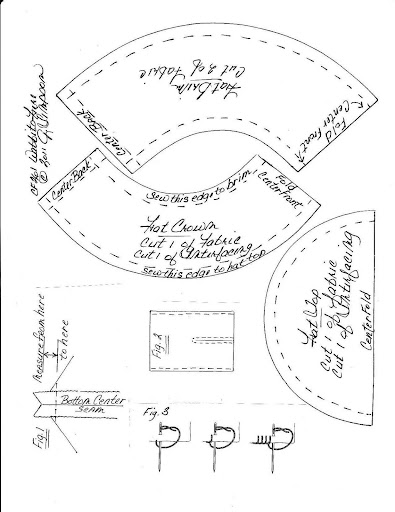 © 2011 J. Simpson
Hat Brim
Cut 2 of Fabric
Center Back
Fold
Center Front
Center Back
Sew this edge to brim
Fold
Center Front
Hat Crown
Cut 1 of Fabric
Cut 1 of Interfacing
Sew this edge to hat top
Hat Top
Cut 1 of Fabric
Cut 1 of Interfacing
Center Fold
Measure from here
to here
Bottom Center
Seam
Fig 1
Fig. 2
Fig. 3